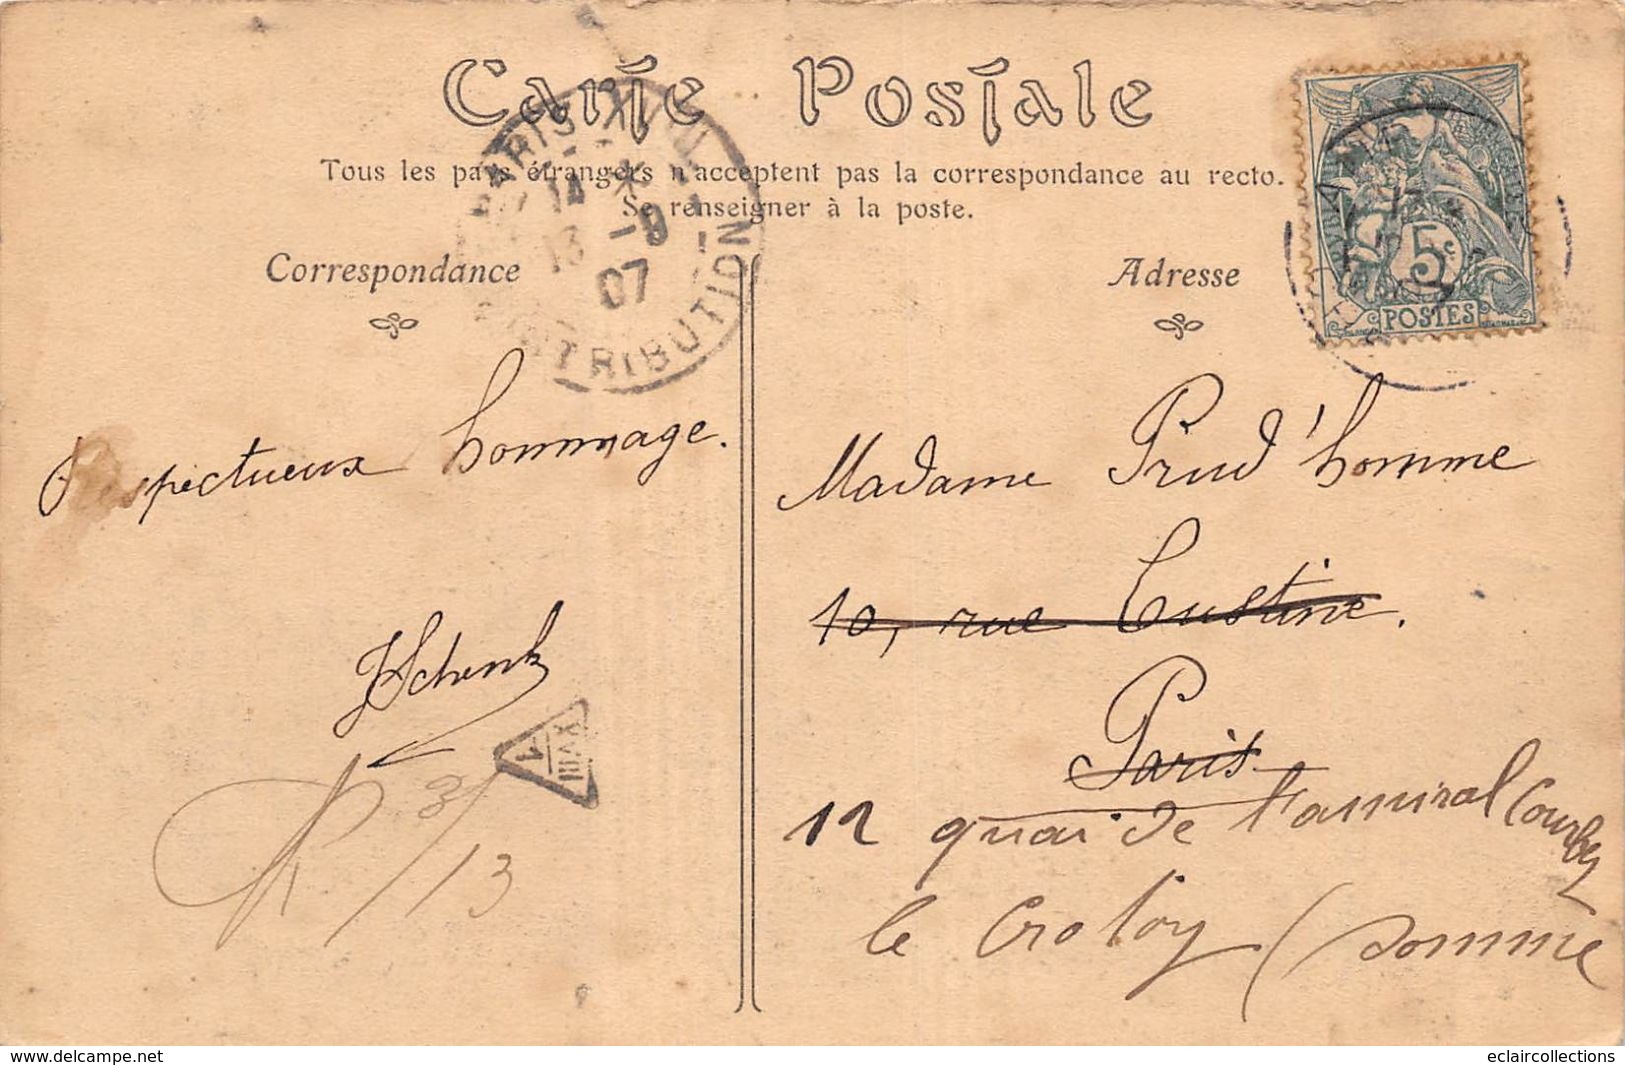 Carte Postale
Tous les pays étrangers n'acceptent pas la correspondance au recto.
Se renseigner à la poste.
Correspondance
Adresse
PARIS XVIII
14 *
13 -8
07
DISTRIBUTION
5c
POSTES
Respectueux hommage.
Schenk
1
XVIII
3/
/13
Madame Prud'homme
10, rue Custine.
Paris
12 quai de l'amiral Courbet
le Crotoy (Somme
www.delcampe.net
eclaircollections